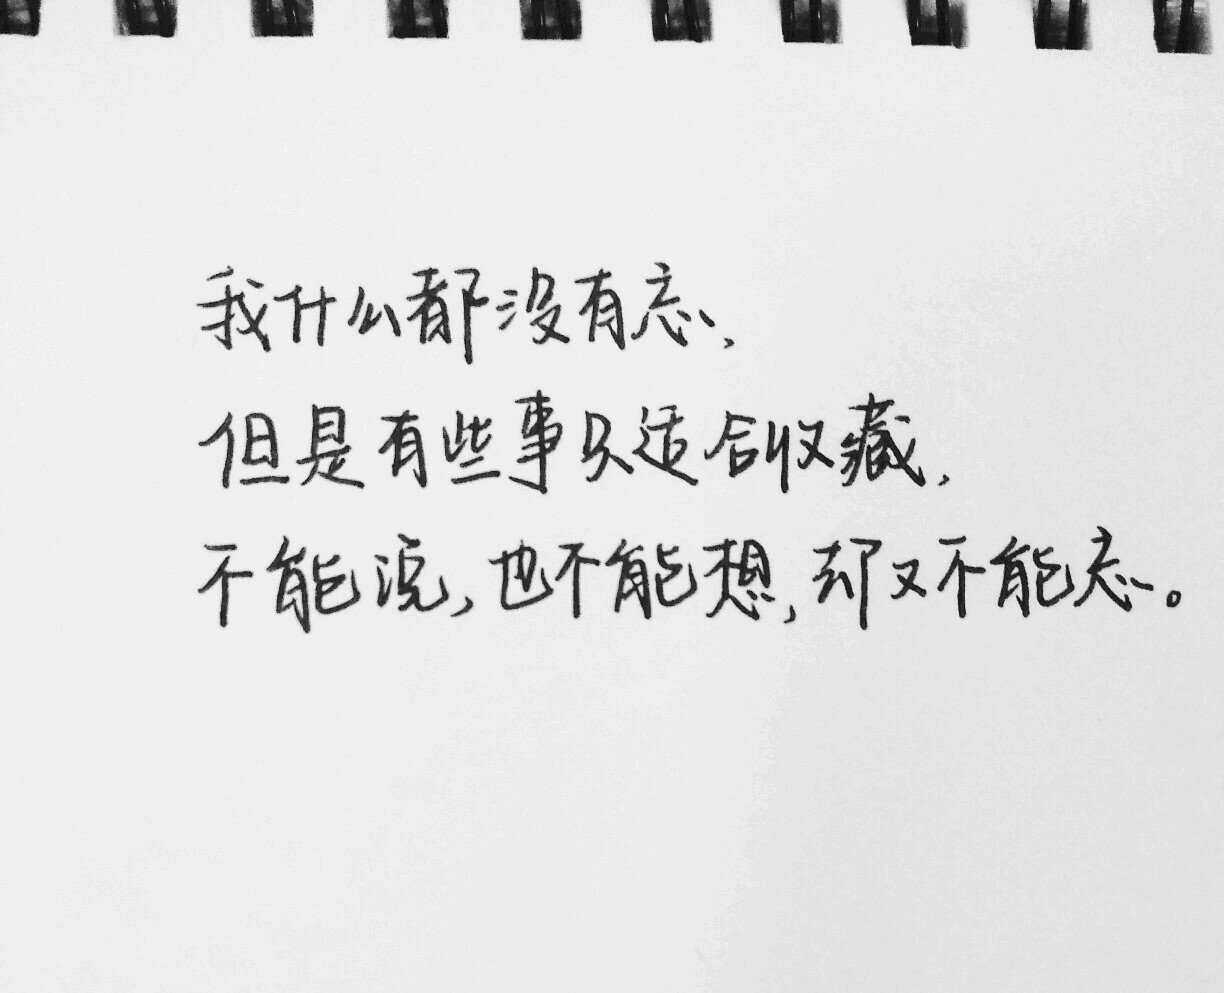 我什么都没有忘,
但是有些事只适合收藏,
不能说,也不能想,却又不能忘。